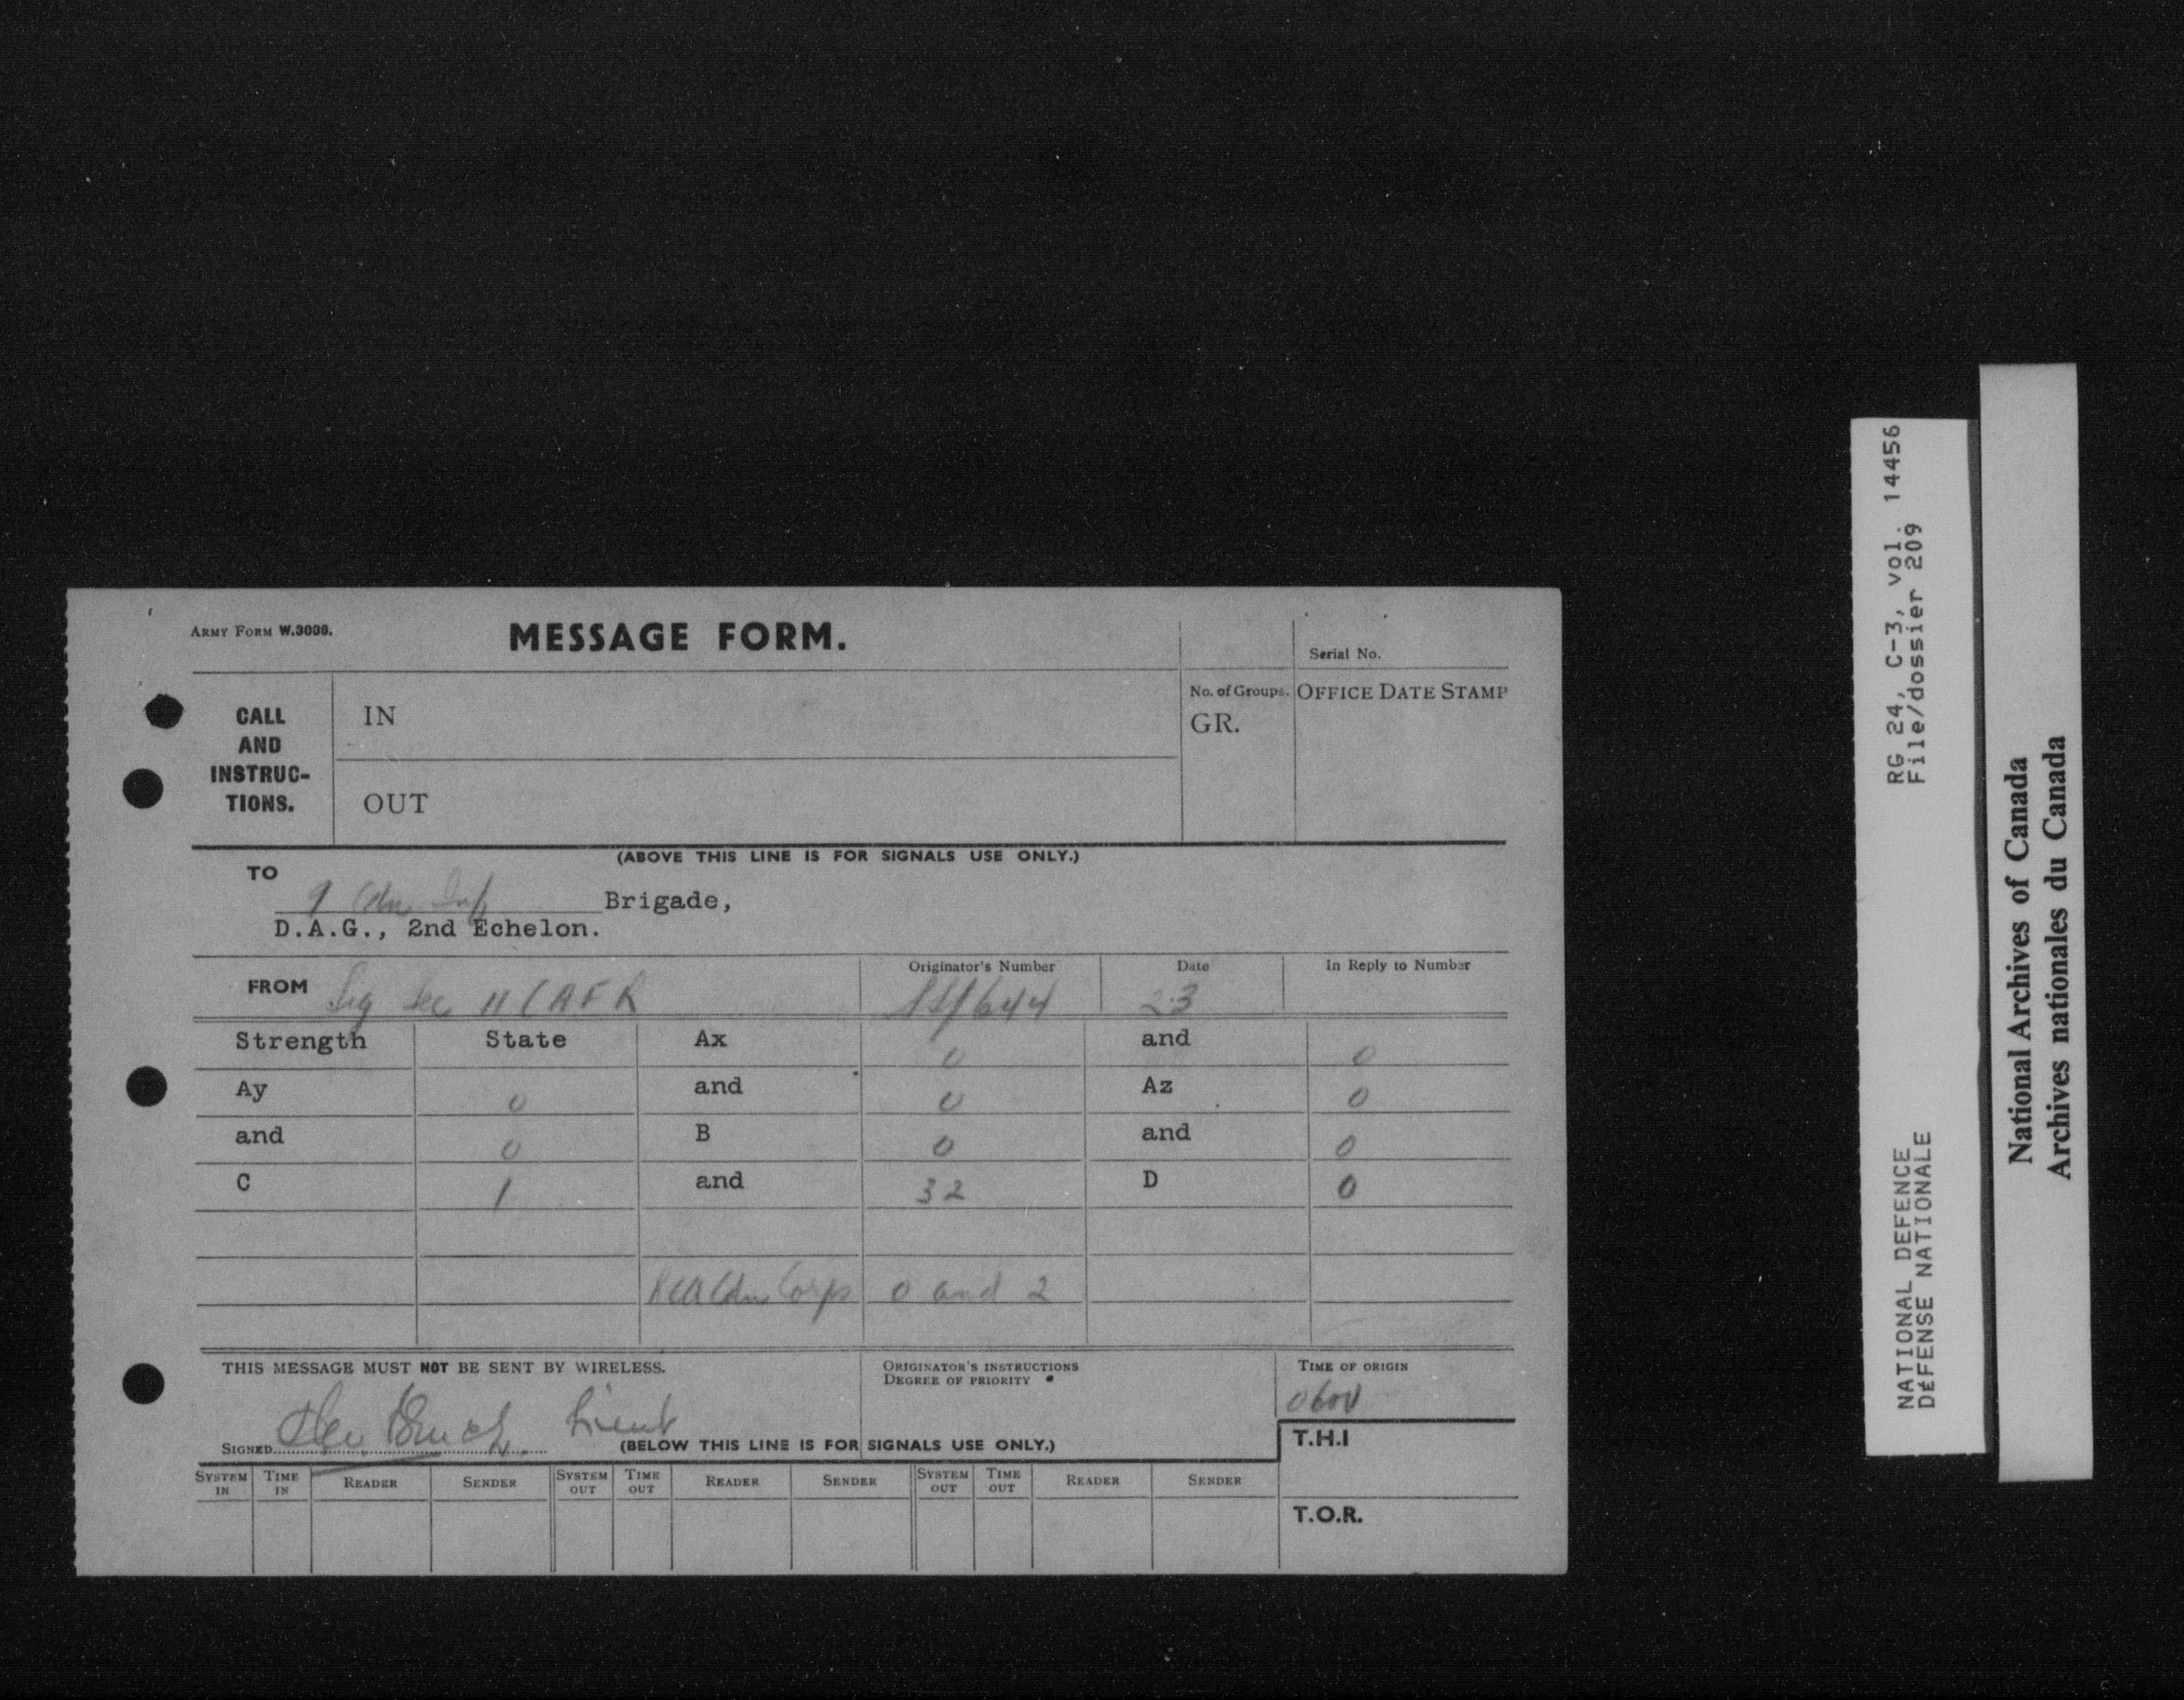 ARMY FORM W.3006.
MESSAGE FORM.
Serial No.
CALL AND INSTRUC-TIONS.
IN
OUT
No. of Groups.
GR.
OFFICE DATE STAMP
(ABOVE THIS LINE IS FOR SIGNALS USE ONLY.)
TO
9 Cdn Inf Brigade,
D.A.G., 2nd Echelon.
FROM Sig Sec 11 CAFR
Originator's Number
/644
Date
23
In Reply to Number
Strength State Ax 0 and 0
Ay 0 and 0 Az 0
and 0 B 0 and 0
C 1 and 32 D 0
Cdn Corps 0 and 2
THIS MESSAGE MUST NOT BE SENT BY WIRELESS.
ORIGINATOR'S INSTRUCTIONS
DEGREE OF PRIORITY
TIME OF ORIGIN
0600
SIGNED Lieut
(BELOW THIS LINE IS FOR SIGNALS USE ONLY.)
T.H.I
SYSTEM IN TIME IN READER SENDER SYSTEM OUT TIME OUT READER SENDER SYSTEM OUT TIME OUT READER SENDER
T.O.R.
RG 24, C-3, vol. 14456
File/dossier 209
NATIONAL DEFENCE
DÉFENSE NATIONALE
National Archives of Canada
Archives nationales du Canada